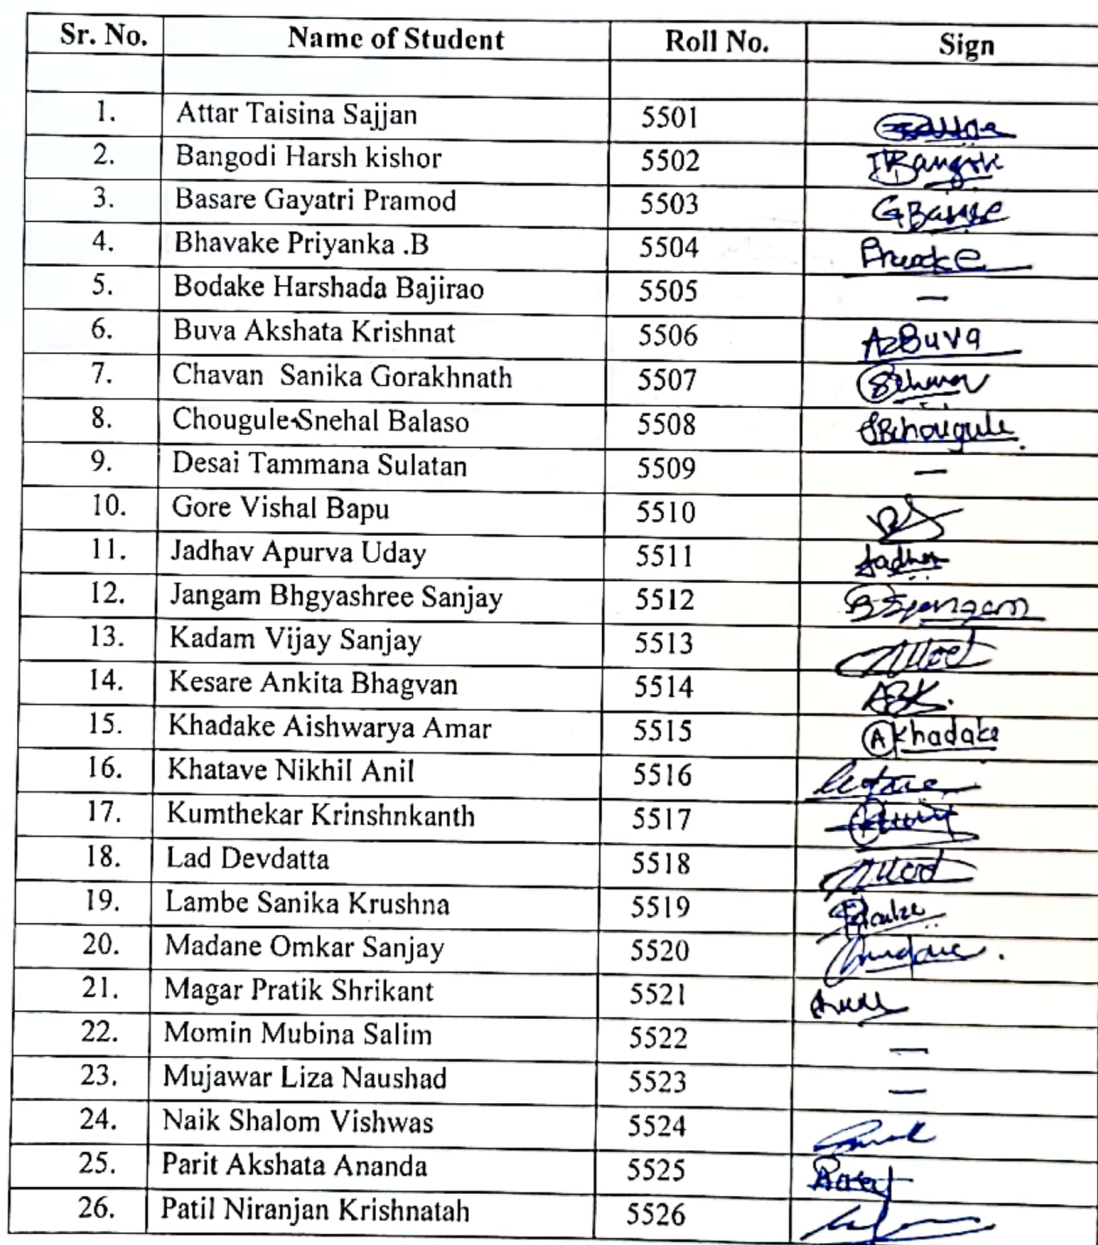 Sr. No. Name of Student Roll No. Sign
1. Attar Taisina Sajjan 5501
2. Bangodi Harsh kishor 5502
3. Basare Gayatri Pramod 5503
4. Bhavake Priyanka .B 5504
5. Bodake Harshada Bajirao 5505 —
6. Buva Akshata Krishnat 5506
7. Chavan Sanika Gorakhnath 5507
8. Chougule Snehal Balaso 5508
9. Desai Tammana Sulatan 5509 —
10. Gore Vishal Bapu 5510
11. Jadhav Apurva Uday 5511 Jadhav
12. Jangam Bhgyashree Sanjay 5512 BSJangam
13. Kadam Vijay Sanjay 5513
14. Kesare Ankita Bhagvan 5514 ABK.
15. Khadake Aishwarya Amar 5515 AKhadake
16. Khatave Nikhil Anil 5516
17. Kumthekar Krinshnkanth 5517
18. Lad Devdatta 5518
19. Lambe Sanika Krushna 5519
20. Madane Omkar Sanjay 5520
21. Magar Pratik Shrikant 5521
22. Momin Mubina Salim 5522 —
23. Mujawar Liza Naushad 5523 —
24. Naik Shalom Vishwas 5524
25. Parit Akshata Ananda 5525
26. Patil Niranjan Krishnatah 5526